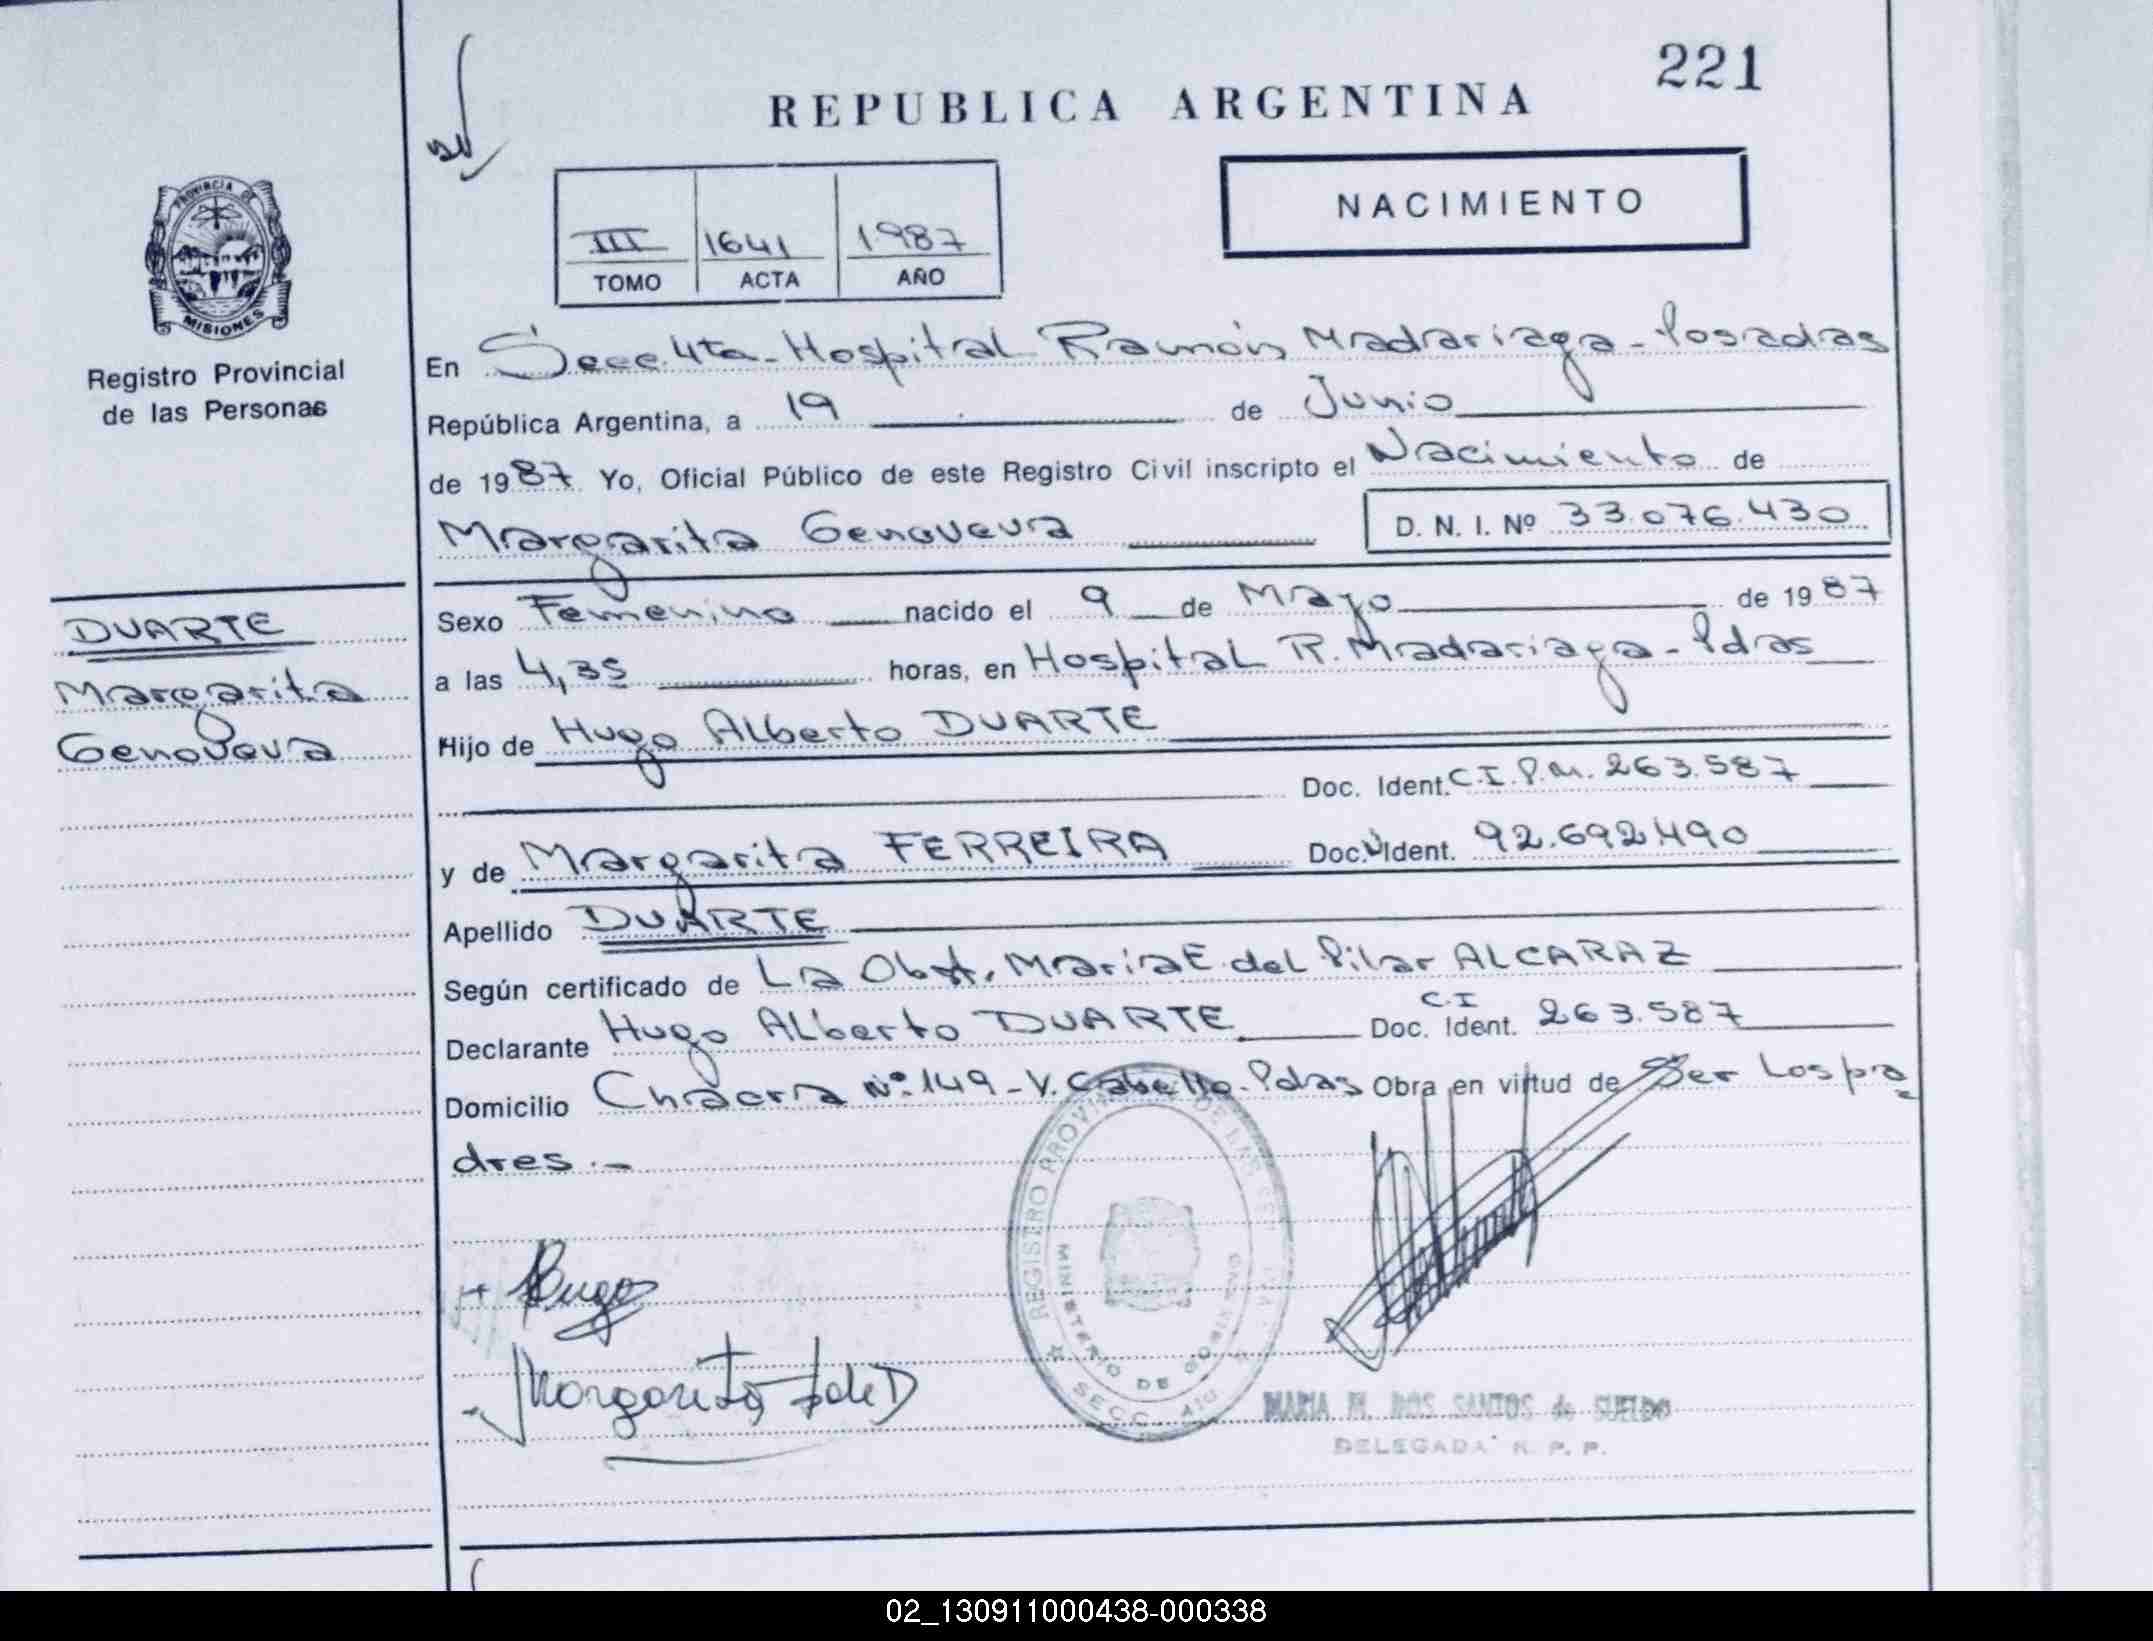 221
REPUBLICA ARGENTINA
NACIMIENTO
III 1641 1987
TOMO ACTA AÑO
PROVINCIA DE
MISIONES
Registro Provincial
de las Personas
En Secc. 4ta - Hospital Ramón Madariaga - Posadas
República Argentina, a 19 de Junio
de 1987 Yo, Oficial Público de este Registro Civil inscripto el Nacimiento de
Margarita Genoveva D. N. I. Nº 33.076.430
DUARTE
Margarita
Genoveva
Sexo Femenino nacido el 9 de Mayo de 1987
a las 4,35 horas, en Hospital R. Madariaga - Pdas
Hijo de Hugo Alberto DUARTE
Doc. Ident. C.I.P.M. 263.587
y de Margarita FERREIRA Doc. Ident. 92.692.490
Apellido DUARTE
Según certificado de La Obst. María E. del Pilar ALCARAZ
Declarante Hugo Alberto DUARTE Doc. Ident. C.I 263.587
Domicilio Chacra Nº 149 - V. Cabello - Pdas Obra en virtud de Ser Los pa
dres.-
REGISTRO PROVINCIAL DE LAS
MINISTERIO DE GOBIERNO
SECC. 4ta
Hugo
Margarita F de D
MARIA M. DOS SANTOS de SUELDO
DELEGADA R. P. P.
02_130911000438-000338